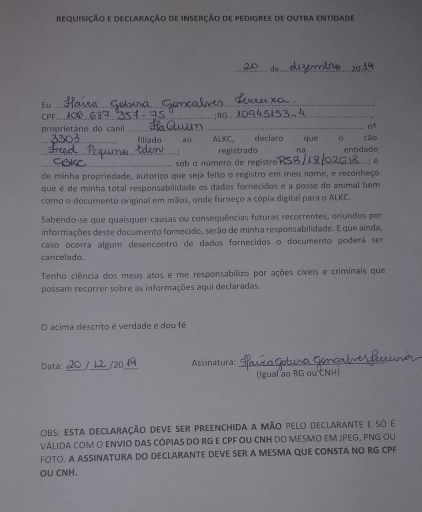 REQUISIÇÃO E DECLARAÇÃO DE INSERÇÃO DE PEDIGREE DE OUTRA ENTIDADE
20 de dezembro 2019
Eu Flavia Gonçalves Ferreira ;
CPF 106 687 357-75 ;RG 10945153-4
proprietário do canil FlaQuem nº
3303, filiado ao ALKC, declaro que o cão
Fred Pequeno Eden ; registrado na entidade
CBKC sob o número de registro RSB/18/02618; é
de minha propriedade, autorizo que seja feito o registro em meu nome, e reconheço
que é de minha total responsabilidade os dados fornecidos e a posse do animal bem
como o documento original em mãos, onde forneço a cópia digital para o ALKC.
Sabendo-se que quaisquer causas ou consequências futuras recorrentes, oriundos por
informações deste documento fornecido, serão de minha responsabilidade. E que ainda,
caso ocorra algum desencontro de dados fornecidos o documento poderá ser
cancelado.
Tenho ciência dos meus atos e me responsabilizo por ações cíveis e criminais que
possam recorrer sobre as informações aqui declaradas.
O acima descrito é verdade e dou fé
Data: 20 / 12 /2019 Assinatura: Flavia Gonçalves Ferreira
(Igual ao RG ou CNH)
OBS: ESTA DECLARAÇÃO DEVE SER PREENCHIDA A MÃO PELO DECLARANTE E SÓ É
VÁLIDA COM O ENVIO DAS CÓPIAS DO RG E CPF OU CNH DO MESMO EM JPEG, PNG OU
FOTO. A ASSINATURA DO DECLARANTE DEVE SER A MESMA QUE CONSTA NO RG CPF
OU CNH.